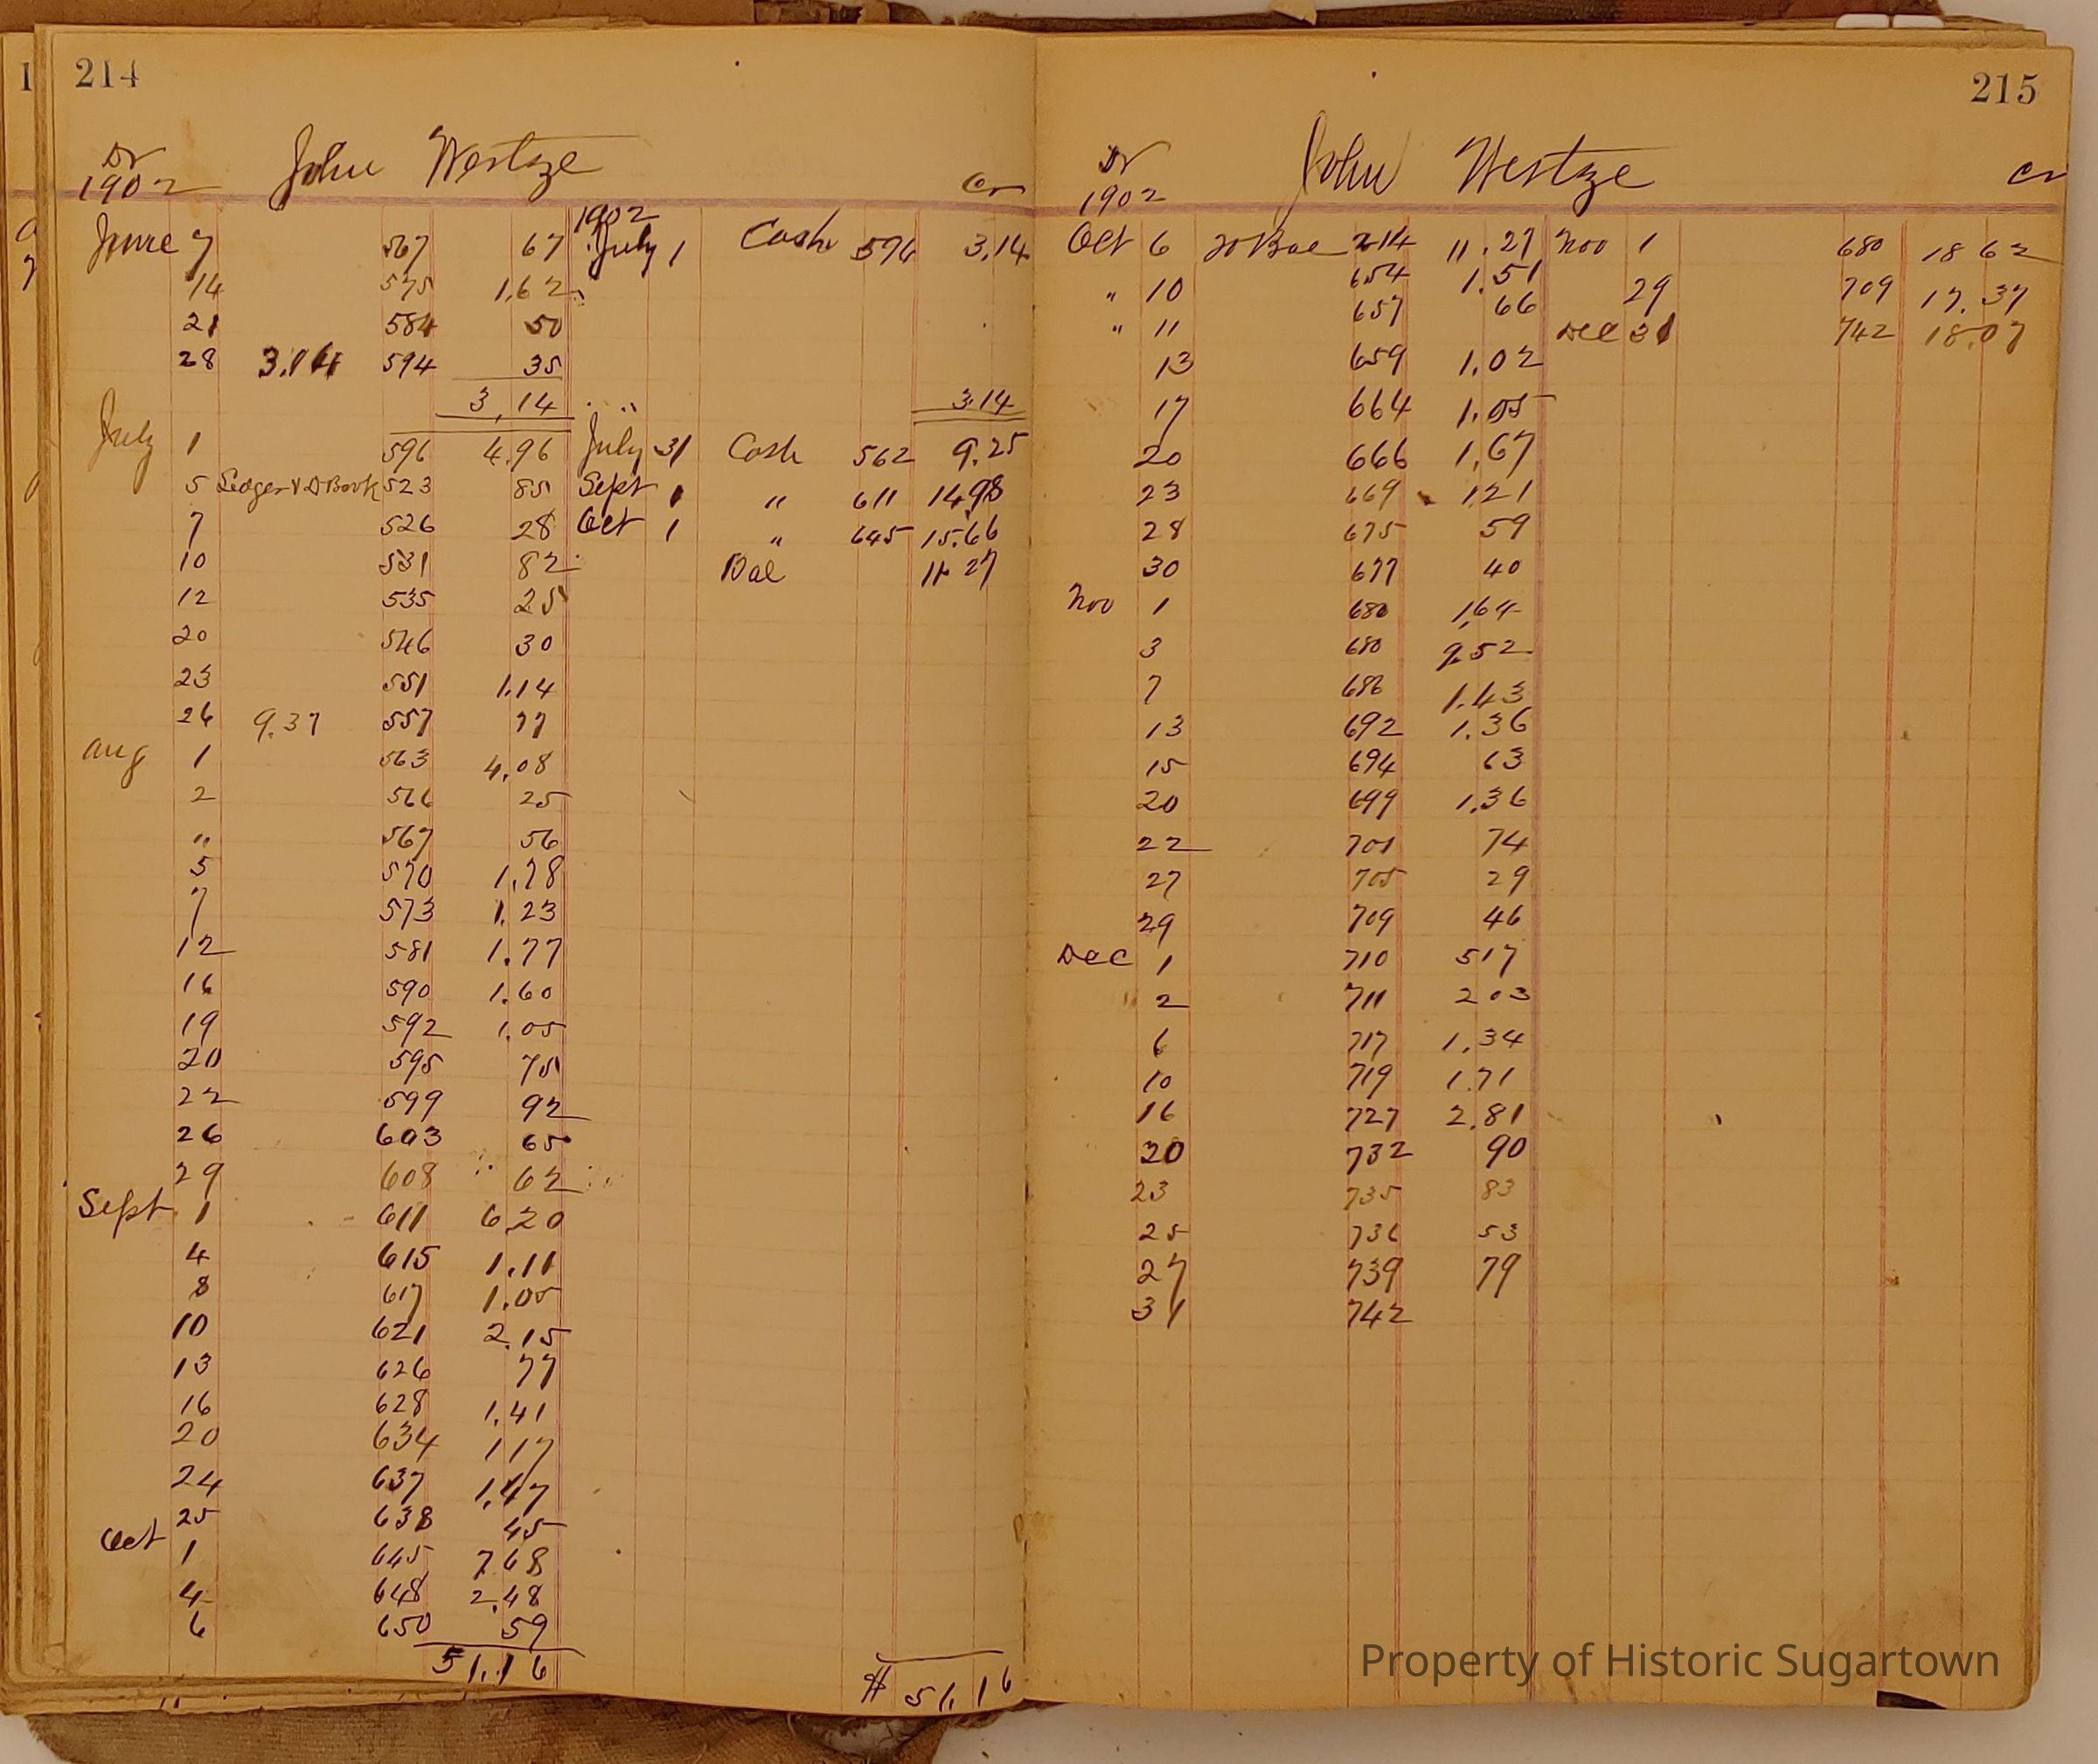 214
Dr John Westze Cr
1902
1902
June 7 567 67 July 1 Cash 596 3.14
14 575 1.62
21 584 50
28 3.14 594 35
3.14 3.14
July 1 596 4.96 July 31 Cash 562 9.25
5 Ledger & D Book 523 85 Sept 1 " 611 14.98
7 526 28 Oct 1 " 645 15.66
10 531 82 Bal 11.27
12 535 25
20 546 30
23 551 1.14
26 9.37 557 77
Aug 1 563 4.08
2 566 25
" 567 56
5 570 1.78
7 573 1.23
12 581 1.77
16 590 1.60
19 592 1.05
20 595 75
22 599 92
26 603 65
29 608 62
Sept 1 611 6.20
4 615 1.11
8 617 1.05
10 621 2.15
13 626 77
16 628 1.41
20 634 1 17
24 637 1.47
25 638 45
Oct 1 645 7 68
4 648 2.48
6 650 59
51.16 $ 51.16
215
Dr John Westze Cr
1902
Oct 6 To Bal 214 11.27 Nov 1 680 18 62
" 10 654 1.51 29 709 17.37
" 11 657 66 Dec 31 742 18.07
13 659 1.02
17 664 1.05
20 666 1.67
23 669 1 21
28 675 59
30 677 40
Nov 1 680 1.64
3 680 9.52
7 686 1.43
13 692 1.36
15 694 63
20 699 1.36
22 701 74
27 705 29
29 709 46
Dec 1 710 5 17
2 711 2 03
6 717 1.34
10 719 1.71
16 727 2.81
20 732 90
23 735 83
25 736 53
27 739 79
31 742
Property of Historic Sugartown